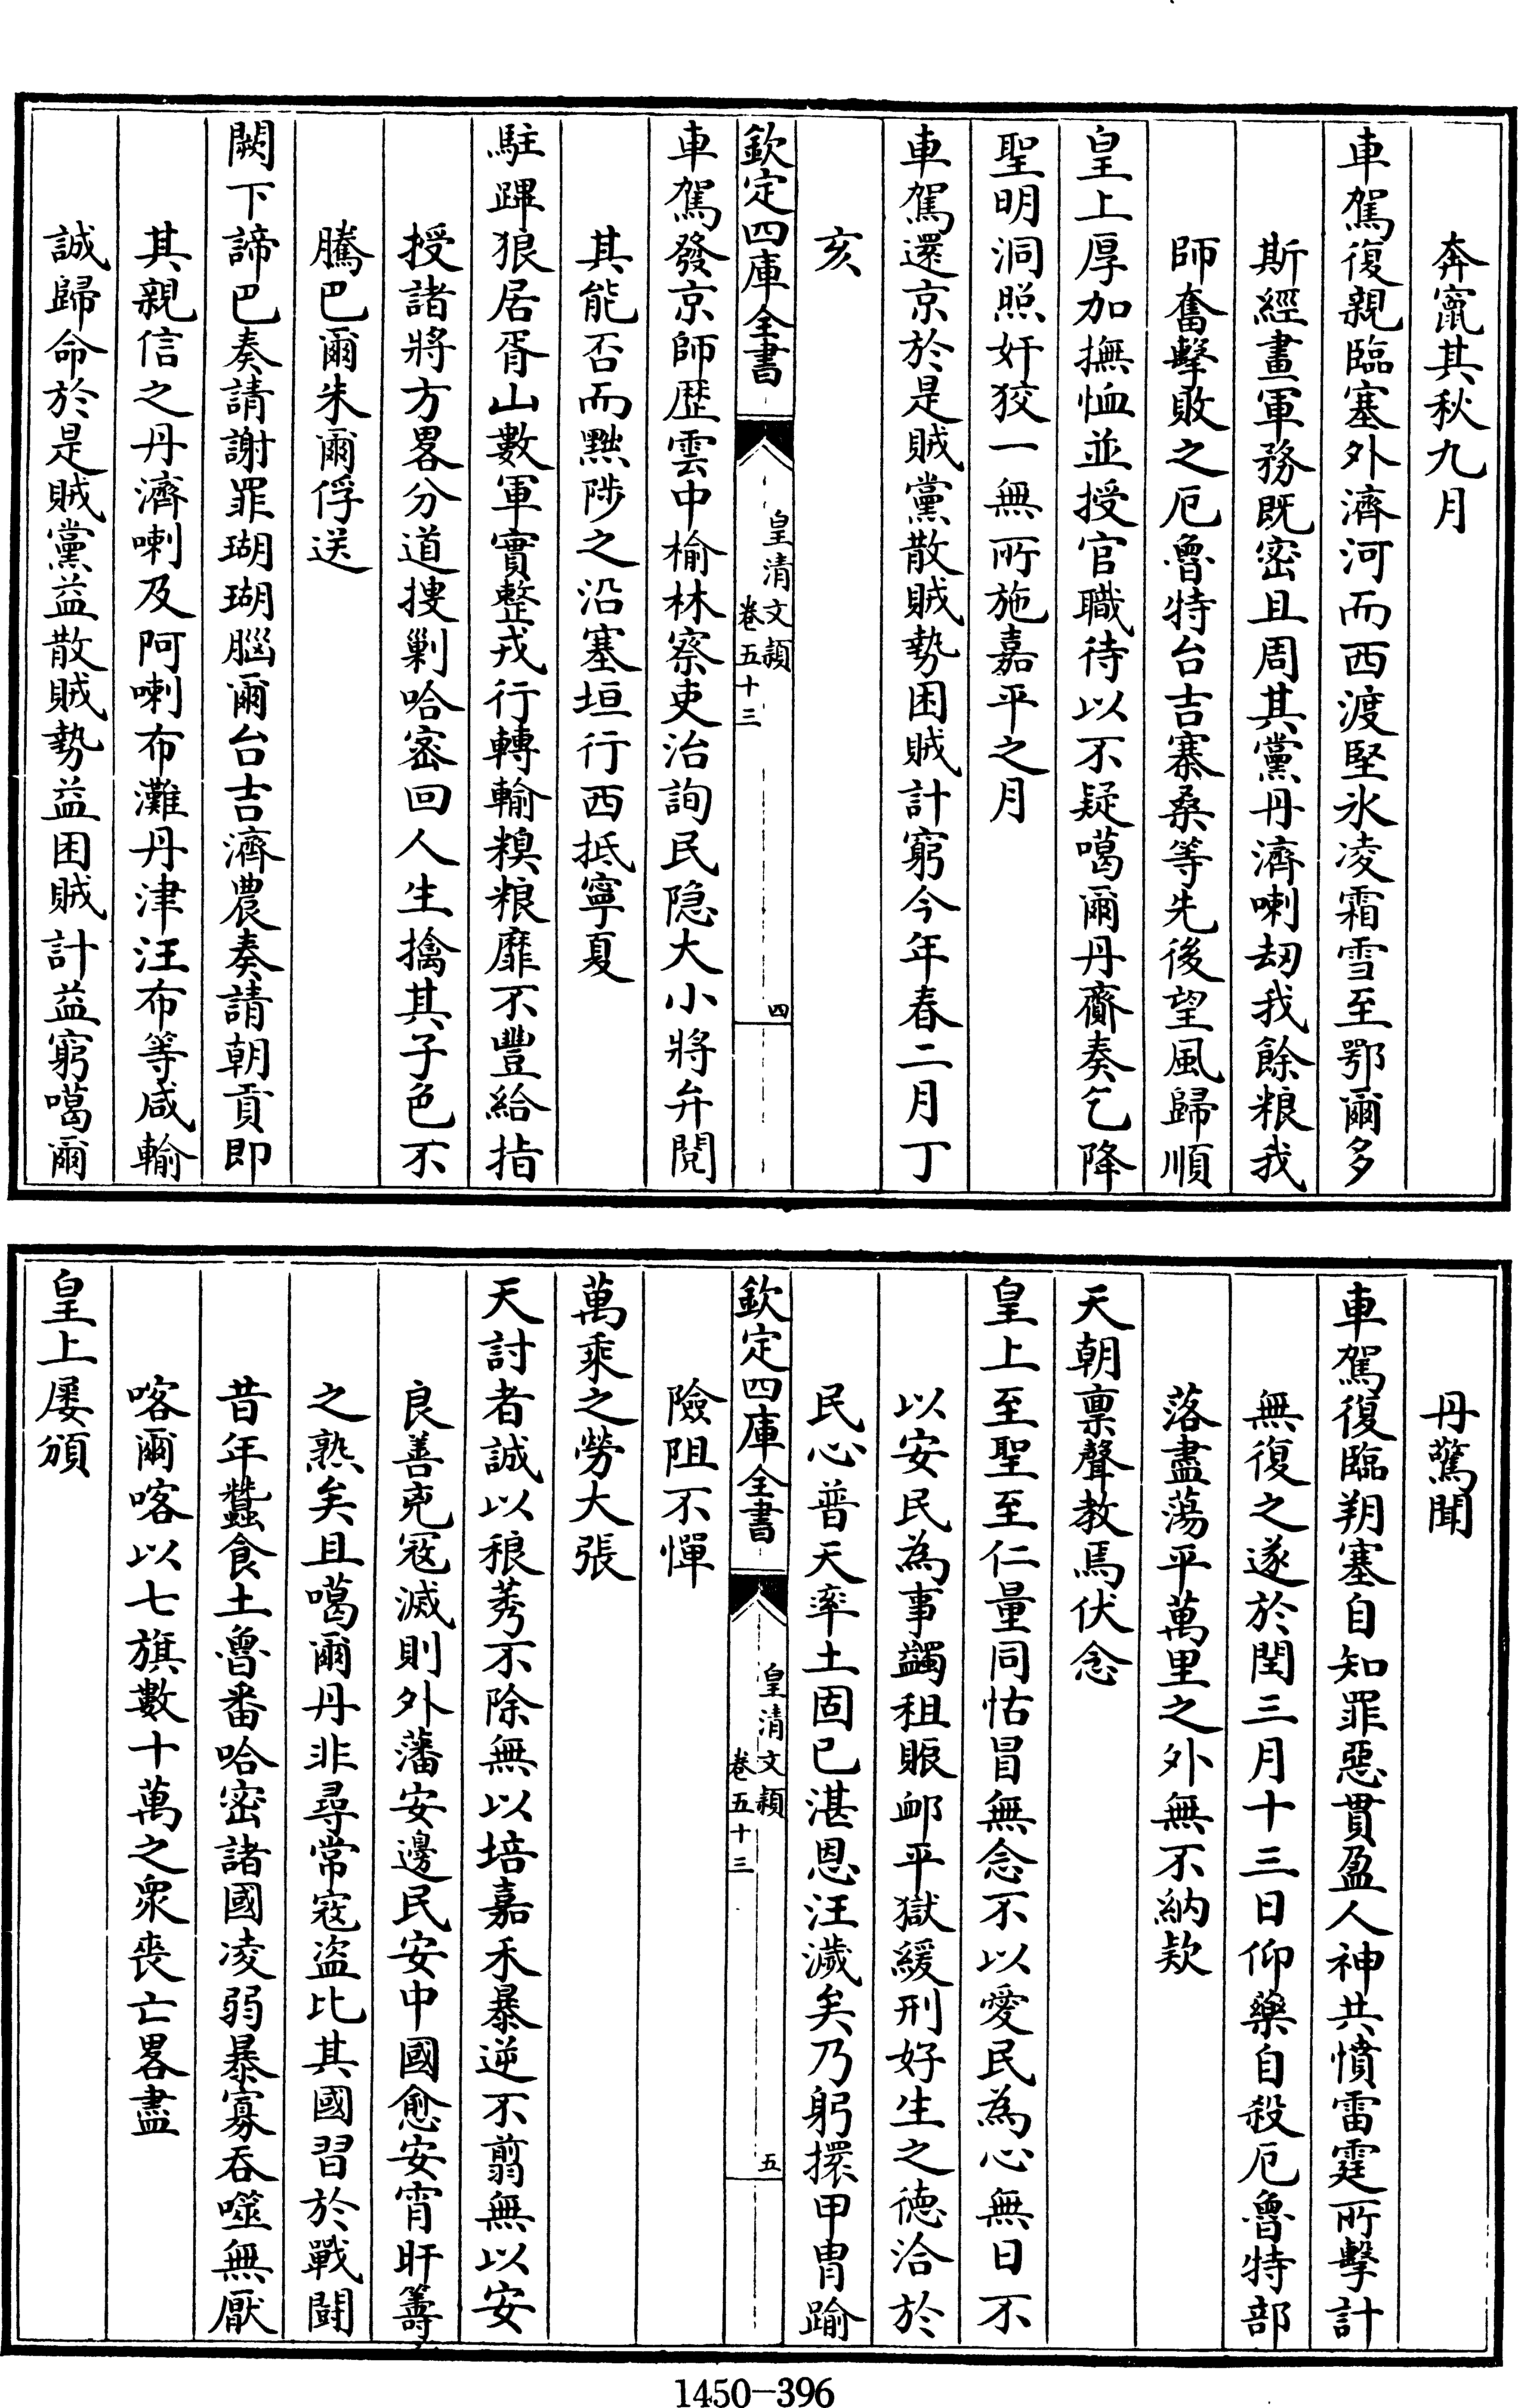 奔竄其秋九月
車駕復親臨塞外濟河而西渡堅氷凌霜雪至鄂爾多
斯經畫軍務既密且周其黨丹濟喇刼我餘粮我
師奮擊敗之厄魯特台吉寨桑等先後望風歸順
皇上厚加撫恤並授官職待以不疑噶爾丹齎奏乞降
聖明洞照奸狡一無所施嘉平之月
車駕還京於是賊黨散賊勢困賊計窮今年春二月丁
亥
欽定四庫全書
皇清文穎
卷五十三
四
車駕發京師歴雲中榆林察吏治詢民隐大小將弁閱
其能否而黜陟之沿塞垣行西抵寧夏
駐蹕狼居胥山數軍實整戎行轉輸糗粮靡不豐給指
授諸將方畧分道捜剿哈宻回人生擒其子色不
騰巴爾朱爾俘送
闕下諦巴奏請謝罪瑚瑚腦爾台吉濟農奏請朝貢即
其親信之丹濟喇及阿喇布灘丹津汪布等咸輸
誠歸命於是賊黨益散賊勢益困賊計益窮噶爾
丹驚聞
車駕復臨朔塞自知罪惡貫盈人神共憤雷霆所擊計
無復之遂於閏三月十三日仰藥自殺厄魯特部
落盡蕩平萬里之外無不納欵
天朝禀聲教焉伏念
皇上至聖至仁量同怙冒無念不以愛民為心無日不
以安民為事蠲租賑卹平獄緩刑好生之德洽於
民心普天率土固已湛恩汪濊矣乃躬擐甲胄踰
欽定四庫全書
皇清文穎
卷五十三
五
險阻不憚
萬乘之勞大張
天討者誠以稂莠不除無以培嘉禾暴逆不翦無以安
良善兇寇滅則外藩安邊民安中國愈安宵旰籌
之熟矣且噶爾丹非尋常寇盜比其國習於戰鬪
昔年蠶食土魯番哈密諸國凌弱暴寡吞噬無厭
喀爾喀以七旗數十萬之衆喪亡畧盡
皇上屢頒
1450-396